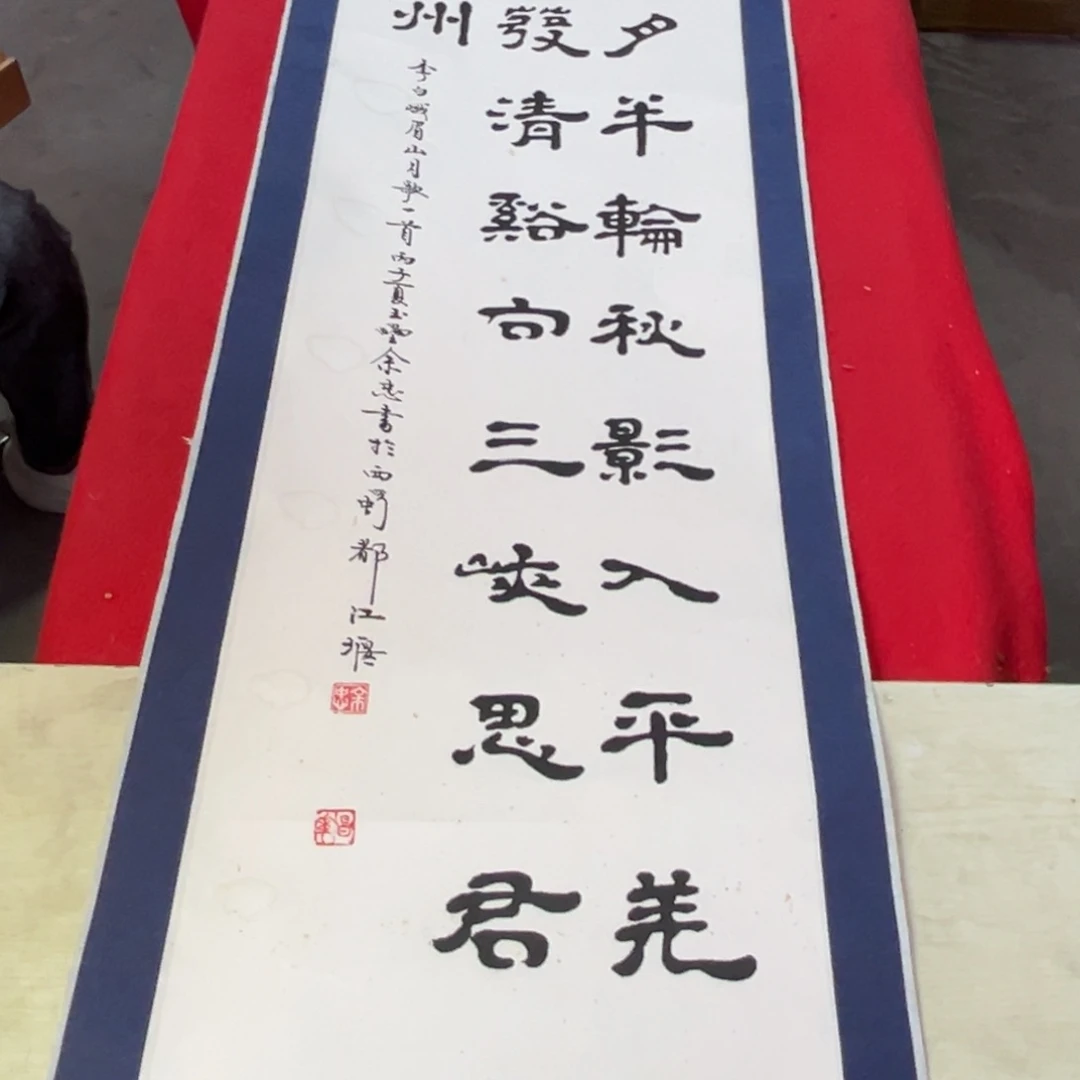 月半輪秋影入平羌
發清谿向三峽思君
州
李白峨眉山月歌一首丙子夏玉壘余忠書於西蜀都江堰
余忠